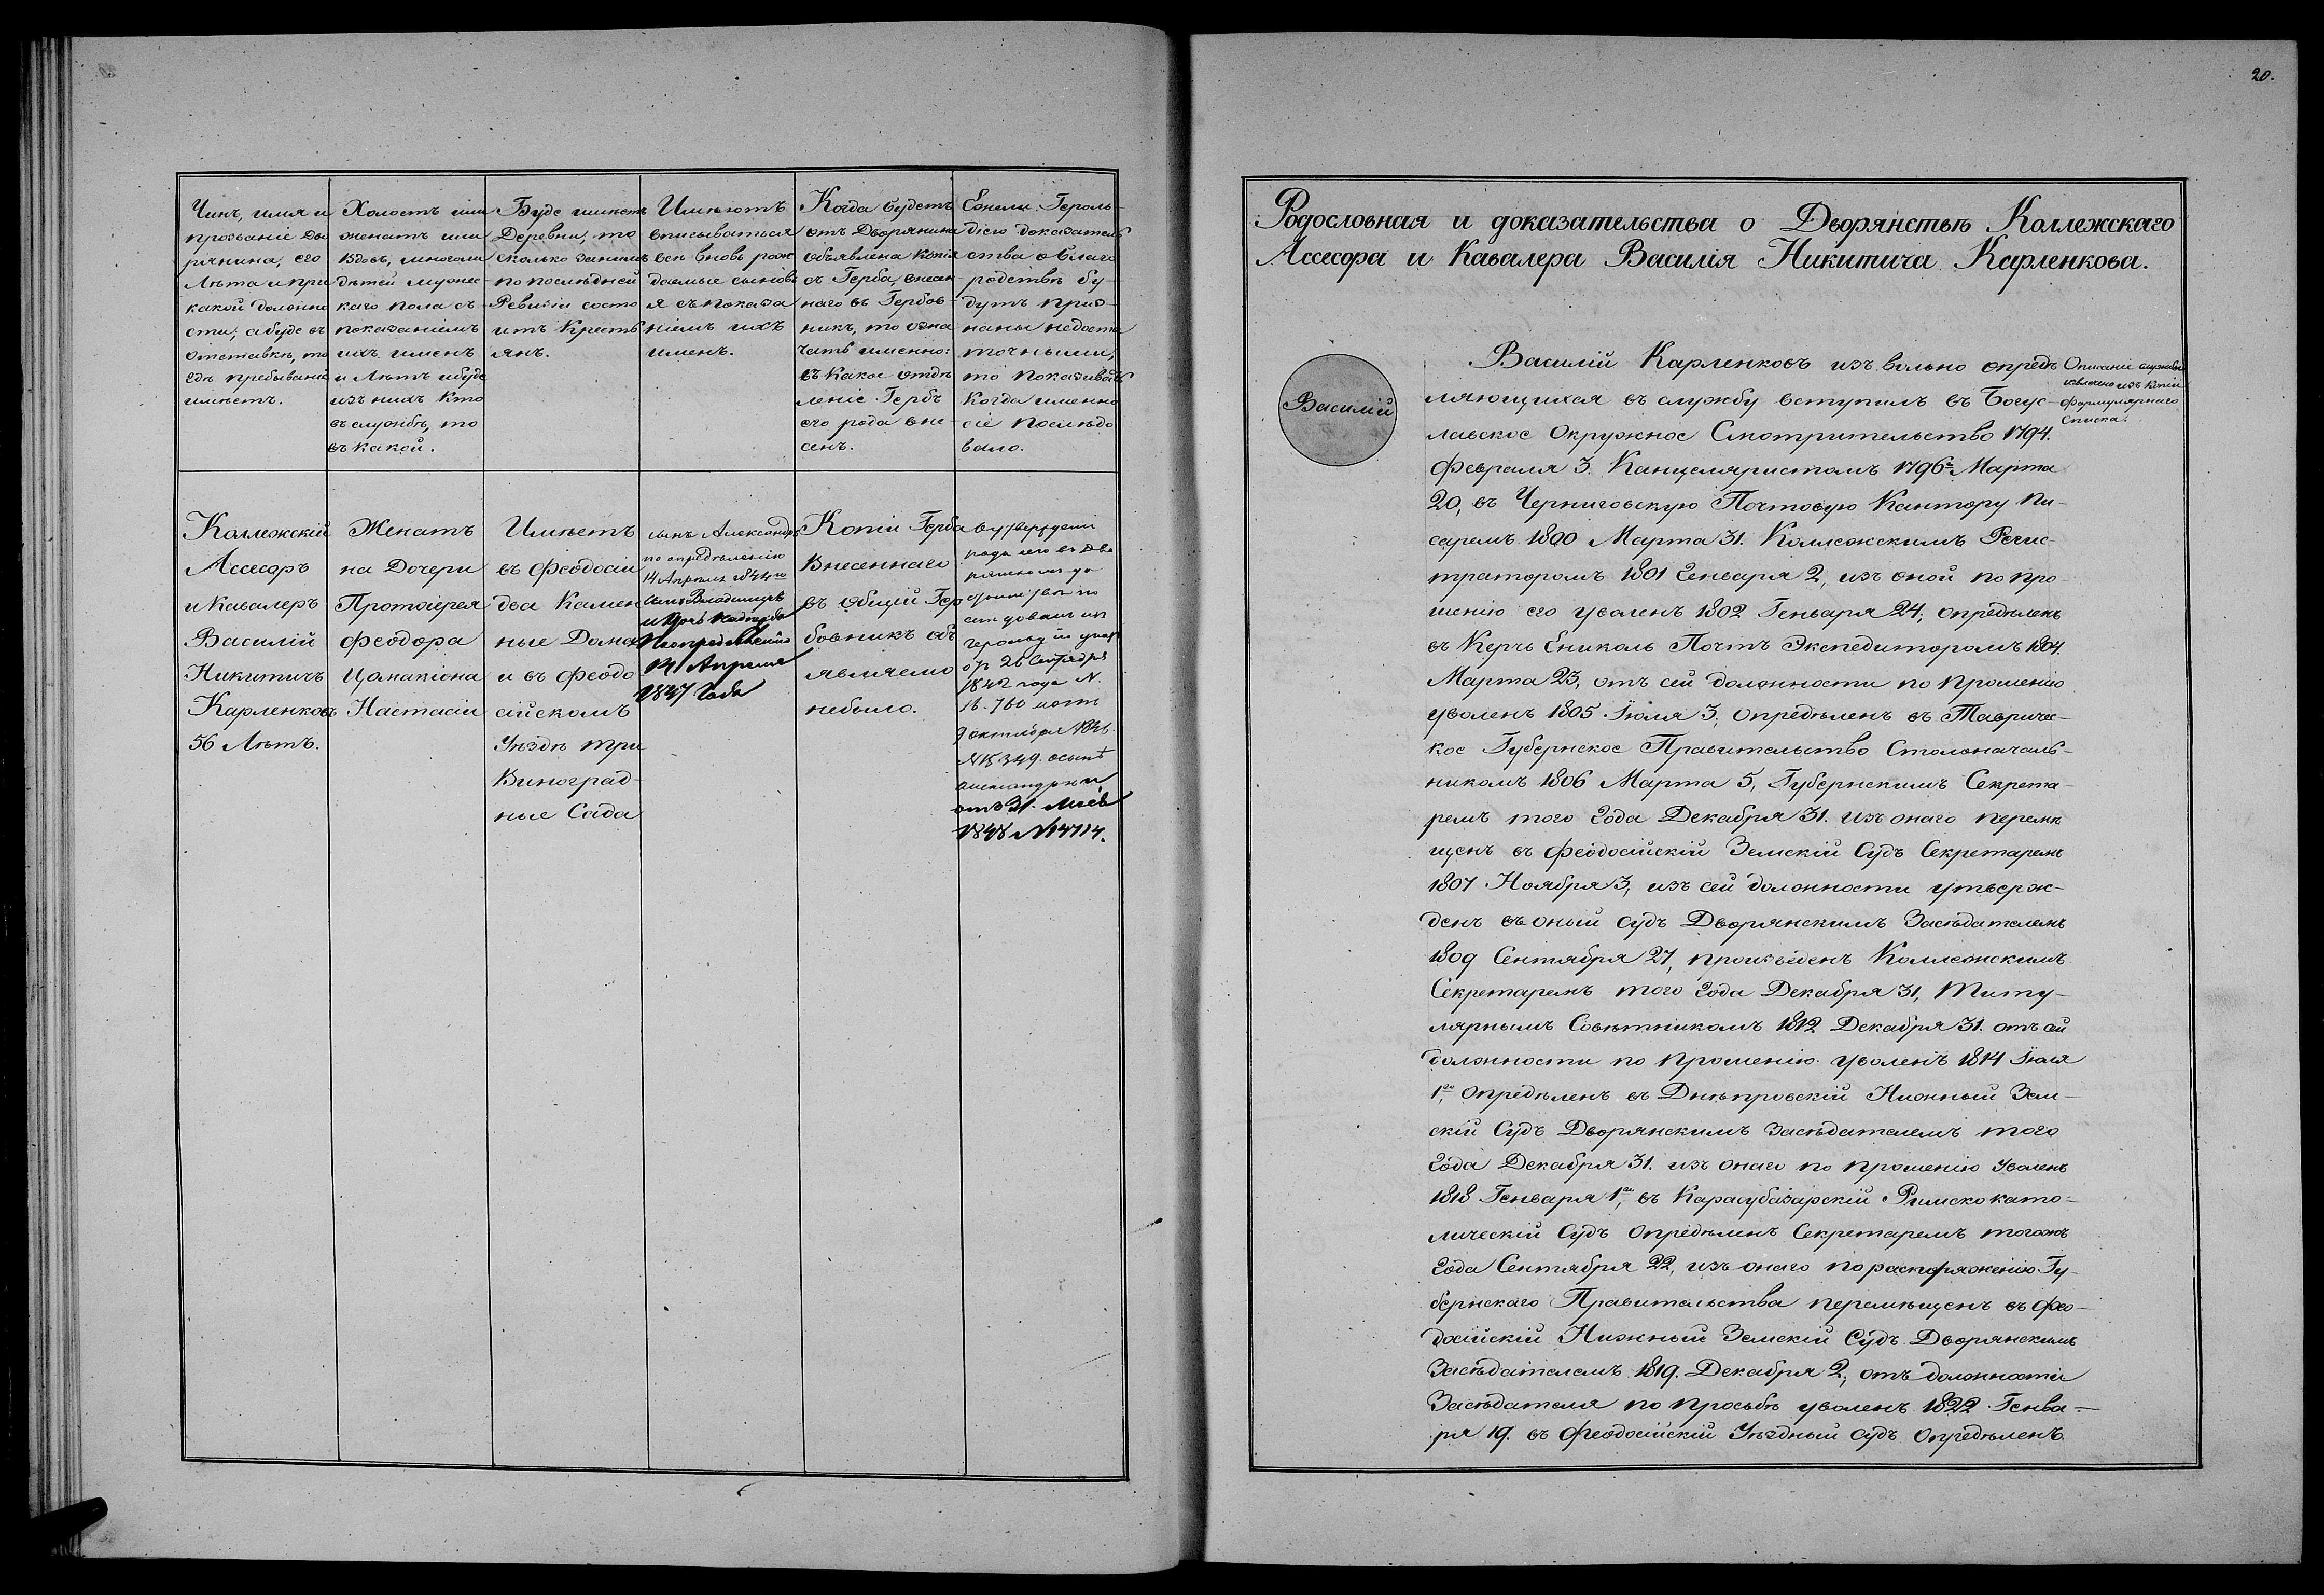 Чинъ, имя и
прозваніе Дво
рянина, его
Лѣта и при
какой должно
сти, а буде въ
отставкѣ, то
гдѣ пребываніе
имѣетъ.
Холостъ или
женатъ или
вдовъ, многоли
дѣтей мужес-
каго пола съ
показаніемъ
ихъ именъ
и Лѣтъ и буде
изъ нихъ кто
въ службѣ, то
въ какой.
Буде имѣетъ
Деревни, то
сколько за нимъ
по послѣдней
Ревизіи состо
итъ Кресть
янъ.
Имѣютъ
вписываться
всѣ вновь рож
даемые сыновь
я съ показа
ніемъ ихъ
именъ.
Когда будетъ
отъ Дворянина
объявлена копія
съ Герба, внесен
наго въ Гербов-
никъ, то озна
чать именно:
въ какое отдѣ
леніе Гербъ
его рода вне-
сенъ.
Ежели Героль-
діею доказатель
ства о благо
родствѣ бу-
дутъ приз-
наны недоста
точными,
то показывать
когда именно
сіе послѣдо
вало.
Коллежскій
Ассесоръ
и Кавалеръ
Василій
Никитичъ
Карленковъ
56 Лѣтъ.
Женатъ
на Дочери
Протоіерея
Феодора
Цомакіона
Настасіи
Имѣетъ
въ Феодосіи
два Камен
ные Дома
и въ Феодо
сійскомъ
Уѣздѣ три
Виноград-
ные Сада
сынъ Александръ
по опредѣленію
14 Апрѣля 1844 го
Сынъ Владиміръ
и дочь Надежда
По опредѣленію
Апреля
1847 Года
Копіи Герба
Внесеннаго
въ Общій Гер
бовникъ объ
являемо
небыло.
рода его въ Дво
герольдіи указ
26 Сентября
1842 года N.
16.760 
9 октября 1846.
N 15349. о сынѣ
александрѣ и
отъ 31.
1848 N 4714.
20.
Родословная и доказательства о Дворянствѣ Коллежскаго
Ассесора и Кавалера Василія Никитича Карленкова.
Василій
Описаніе службы
извлечено изъ копіи
Формулярнаго
списка.
Василій Карленковъ изъ вольно опредѣ
ляющихся въ службу вступилъ въ Богус-
лавское Окружное Смотрительство 1794.
Февраля 3. Канцеляристомъ 1796 г. Марта
20, въ Черниговскую Почтовую Кантору Пи-
саремъ 1800 Марта 31. Коллежскимъ Регис-
траторомъ 1801 Генваря 2, изъ оной по про-
шенію его уволенъ 1802 Генваря 24, опредѣленъ
въ Керчь Ениколь Почтъ Экспедиторомъ 1804.
Марта 23, отъ сей должности по прошенію
уволенъ 1805 Іюля 3, опредѣленъ въ Тавричес-
кое Губернское Правительство Столоначаль-
никомъ 1806 Марта 5, Губернскимъ Секрета-
ремъ того Года Декабря 31. изъ онаго перемѣ
щенъ въ Феодосійскій Земскій Судъ Секретаремъ
1807 Ноября 3, изъ сей должности утверж-
денъ въ оный судъ Дворянскимъ Засѣдателемъ
1809 Сентября 27, произведенъ Коллежскимъ
Секретаремъ того Года Декабря 31, Титу-
лярнымъ Совѣтникомъ 1812 Декабря 31. отъ сей
должности по прошенію уволенъ 1814 Іюля
1 го, опредѣленъ въ Днѣпровскій Нижный Зем-
скій Судъ Дворянскимъ Засѣдателемъ того
Года Декабря 31. изъ онаго по прошенію Уволенъ
1818 Генваря 1 го, въ Карасубазарскій Римско като-
лическій Судъ Опредѣленъ Секретаремъ тогожъ
Года Сентября 22, изъ онаго по распоряженію Гу-
бернскаго Правительства перемѣщенъ въ Фео-
досійскій Нижный Земскій Судъ Дворянскимъ
Засѣдателемъ 1819. Декабря 2, отъ должности
Засѣдателя по просьбѣ уволенъ 1822 Генва-
ря 19. въ Феодосійскій Уѣздный Судъ Опредѣленъ